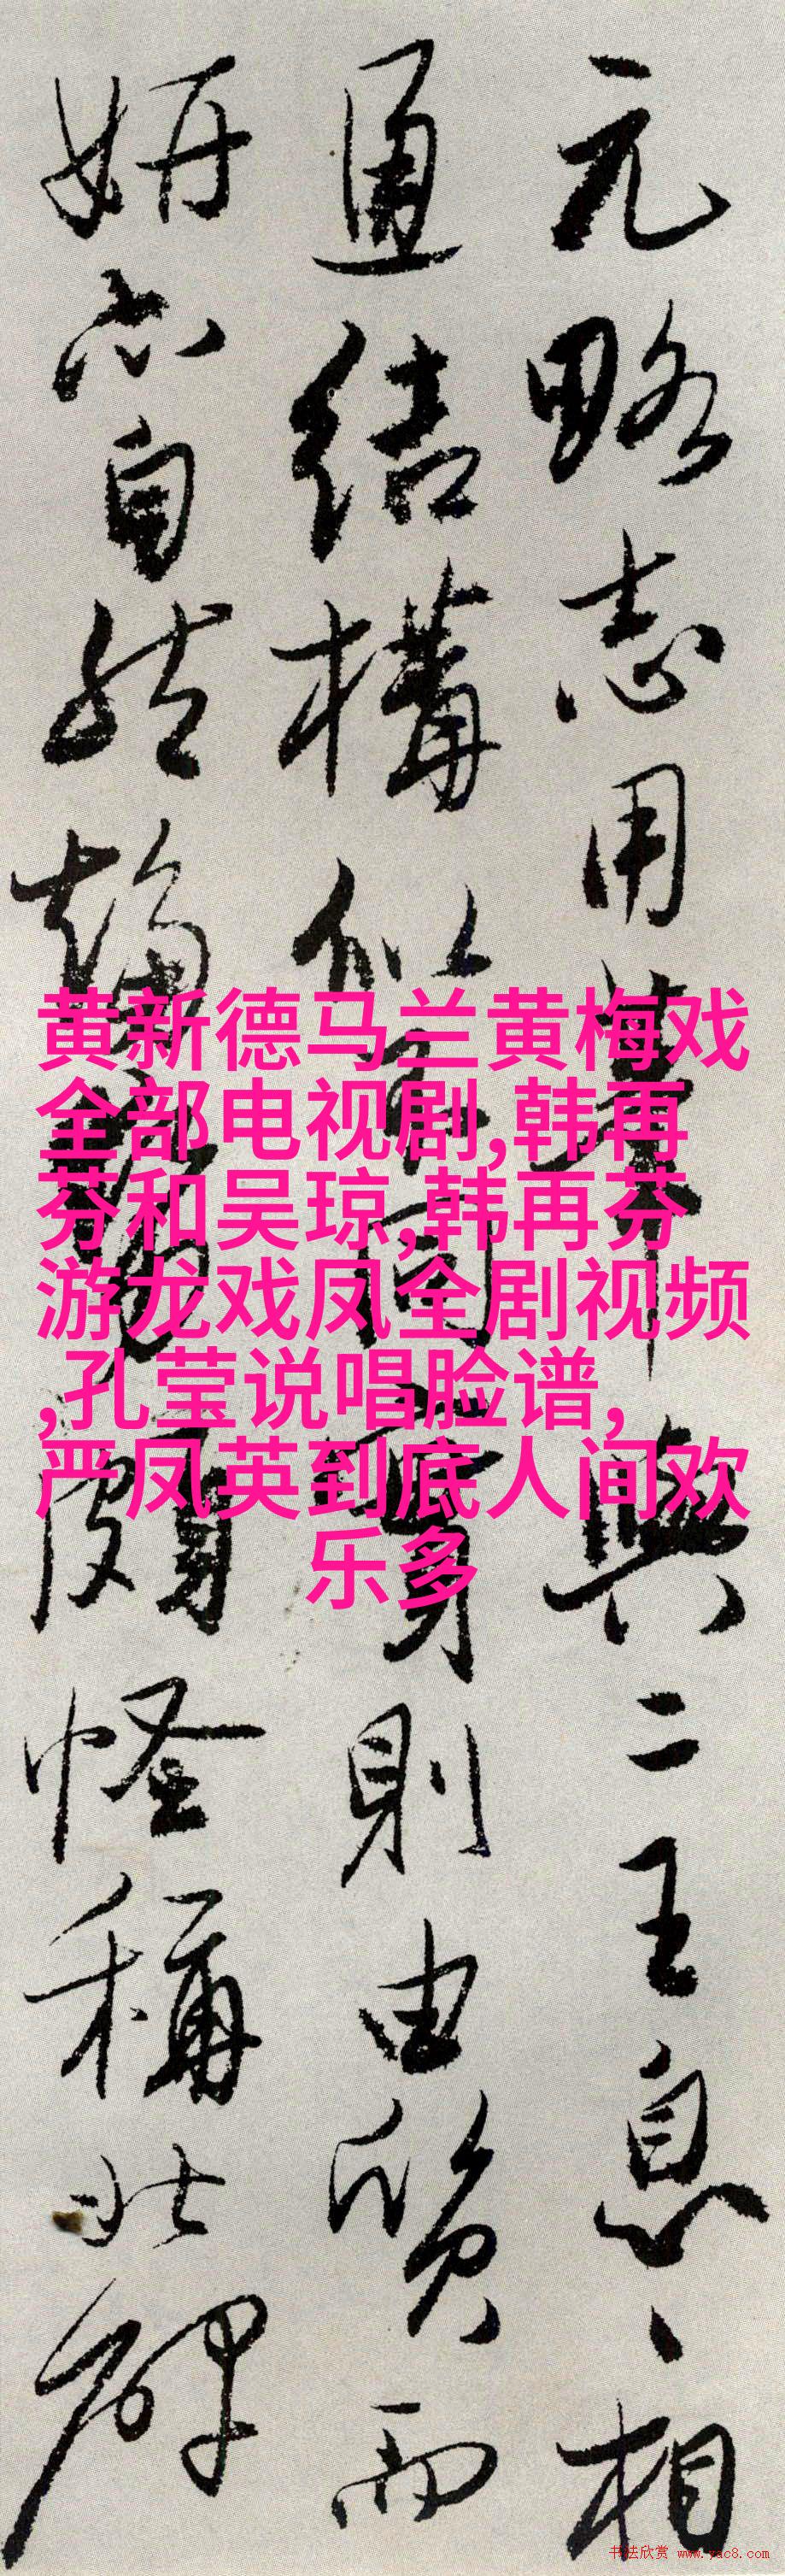 元略志用筆與二王息、相
通结構似不同實則由質而
妍亦自然趨勢頗怪稱北碑
黄新德马兰黄梅戏
全部电视剧,韩再
芬和吴琼,韩再芬
游龙戏凤全剧视频
,孔莹说唱脸谱,
严凤英到底人间欢
乐多
书法欣赏 www.yac8.com